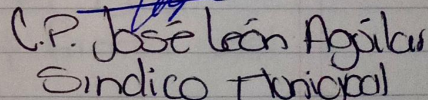 C.P. José León Aguilar
Sindico Municipal